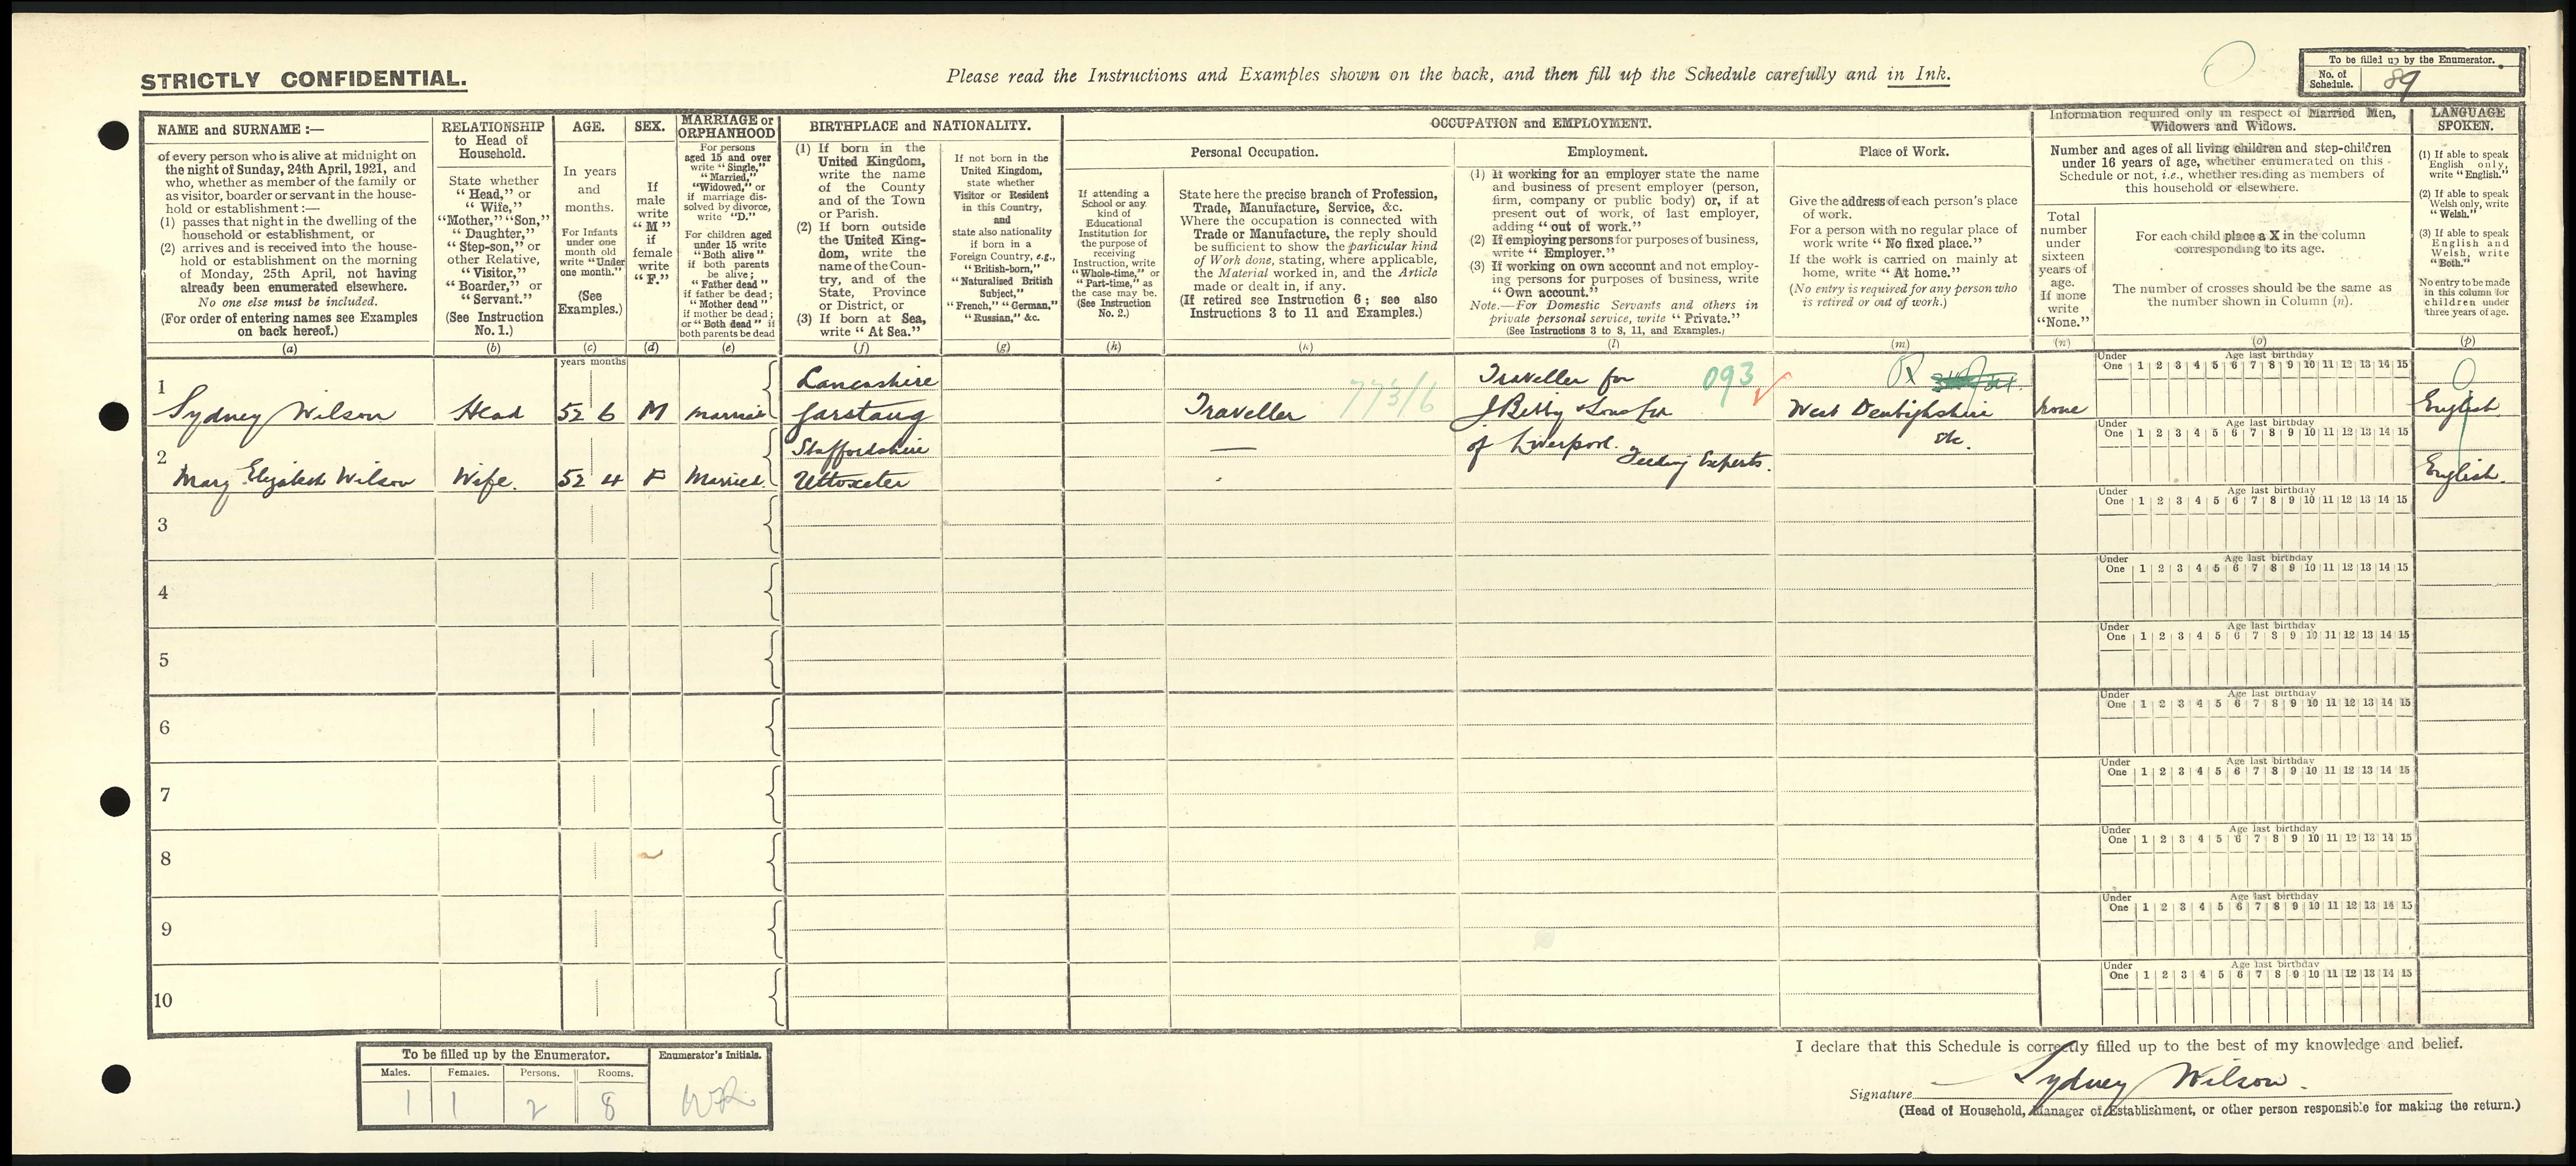 STRICTLY CONFIDENTIAL.
Please read the Instructions and Examples shown on the back, and then fill up the Schedule carefully and in Ink.
To be filled up by the Enumerator.
No. of Schedule. 89
NAME and SURNAME :—
of every person who is alive at midnight on
the night of Sunday, 24th April, 1921, and
who, whether as member of the family or
as visitor, boarder or servant in the house-
hold or establishment :—
(1) passes that night in the dwelling of the
household or establishment, or
(2) arrives and is received into the house-
hold or establishment on the morning
of Monday, 25th April, not having
already been enumerated elsewhere.
No one else must be included.
(For order of entering names see Examples
on back hereof.)
(a)
RELATIONSHIP
to Head of
Household.
State whether
"Head," or
"Wife,"
"Mother," "Son,"
"Daughter,"
"Step-son," or
other Relative,
"Visitor,"
"Boarder," or
"Servant."
(See Instruction
No. 1.)
(b)
AGE.
In years
and
months.
For Infants
under one
month old
write "Under
one month."
(See
Examples.)
(c)
SEX.
If
male
write
"M"
if
female
write
"F."
(d)
MARRIAGE or
ORPHANHOOD
For persons
aged 15 and over
write "Single,"
"Married,"
"Widowed," or
if marriage dis-
solved by divorce,
write "D."
For children aged
under 15 write
"Both alive"
if both parents
be alive;
"Father dead"
if father be dead;
"Mother dead"
if mother be dead;
or "Both dead" if
both parents be dead
(e)
BIRTHPLACE and NATIONALITY.
(1) If born in the
United Kingdom,
write the name
of the County
and of the Town
or Parish.
(2) If born outside
the United King-
dom, write the
name of the Coun-
try, and of the
State, Province
or District, or
(3) If born at Sea,
write "At Sea."
(f)
If not born in the
United Kingdom,
state whether
Visitor or Resident
in this Country,
and
state also nationality
if born in a
Foreign Country, e.g.,
"British-born,"
"Naturalised British
Subject,"
"French," "German,"
"Russian," &c.
(g)
OCCUPATION and EMPLOYMENT.
Personal Occupation.
If attending a
School or any
kind of
Educational
Institution for
the purpose of
receiving
Instruction, write
"Whole-time," or
"Part-time," as
the case may be.
(See Instruction
No. 2.)
(h)
State here the precise branch of Profession,
Trade, Manufacture, Service, &c.
Where the occupation is connected with
Trade or Manufacture, the reply should
be sufficient to show the particular kind
of Work done, stating, where applicable,
the Material worked in, and the Article
made or dealt in, if any.
(If retired see Instruction 6; see also
Instructions 3 to 11 and Examples.)
(k)
Employment.
(1) If working for an employer state the name
and business of present employer (person,
firm, company or public body) or, if at
present out of work, of last employer,
adding "out of work."
(2) If employing persons for purposes of business,
write "Employer."
(3) If working on own account and not employ-
ing persons for purposes of business, write
"Own account."
Note.—For Domestic Servants and others in
private personal service, write "Private."
(See Instructions 3 to 8, 11, and Examples.)
(l)
Place of Work.
Give the address of each person's place
of work.
For a person with no regular place of
work write "No fixed place."
If the work is carried on mainly at
home, write "At home."
(No entry is required for any person who
is retired or out of work.)
(m)
Information required only in respect of Married Men,
Widowers and Widows.
Number and ages of all living children and step-children
under 16 years of age, whether enumerated on this
Schedule or not, i.e., whether residing as members of
this household or elsewhere.
Total
number
under
sixteen
years of
age.
If none
write
"None."
(n)
For each child place a X in the column
corresponding to its age.
The number of crosses should be the same as
the number shown in Column (n).
(o)
LANGUAGE
SPOKEN.
(1) If able to speak
English only,
write "English."
(2) If able to speak
Welsh only, write
"Welsh."
(3) If able to speak
English and
Welsh, write
"Both."
No entry to be made
in this column for
children under
three years of age.
(p)
years months
1 Sydney Wilson Head 52 6 M Married Lancashire Garstang Traveller 773/6
Traveller for 093
J Bibby & Sons Ltd
of Liverpool. Feeding Experts.
West Denbighshire
etc.
None
English
2 Mary Elizabeth Wilson Wife. 52 4 F Married. Staffordshire Uttoxeter — English.
3
4
5
6
7
8
9
10
Under One Age last birthday 1 2 3 4 5 6 7 8 9 10 11 12 13 14 15
Under One Age last birthday 1 2 3 4 5 6 7 8 9 10 11 12 13 14 15
Under One Age last birthday 1 2 3 4 5 6 7 8 9 10 11 12 13 14 15
Under One Age last birthday 1 2 3 4 5 6 7 8 9 10 11 12 13 14 15
Under One Age last birthday 1 2 3 4 5 6 7 8 9 10 11 12 13 14 15
Under One Age last birthday 1 2 3 4 5 6 7 8 9 10 11 12 13 14 15
Under One Age last birthday 1 2 3 4 5 6 7 8 9 10 11 12 13 14 15
Under One Age last birthday 1 2 3 4 5 6 7 8 9 10 11 12 13 14 15
Under One Age last birthday 1 2 3 4 5 6 7 8 9 10 11 12 13 14 15
Under One Age last birthday 1 2 3 4 5 6 7 8 9 10 11 12 13 14 15
To be filled up by the Enumerator.
Enumerator's Initials.
Males. Females. Persons. Rooms.
1 1 2 8
I declare that this Schedule is correctly filled up to the best of my knowledge and belief.
Signature Sydney Wilson.
(Head of Household, Manager of Establishment, or other person responsible for making the return.)